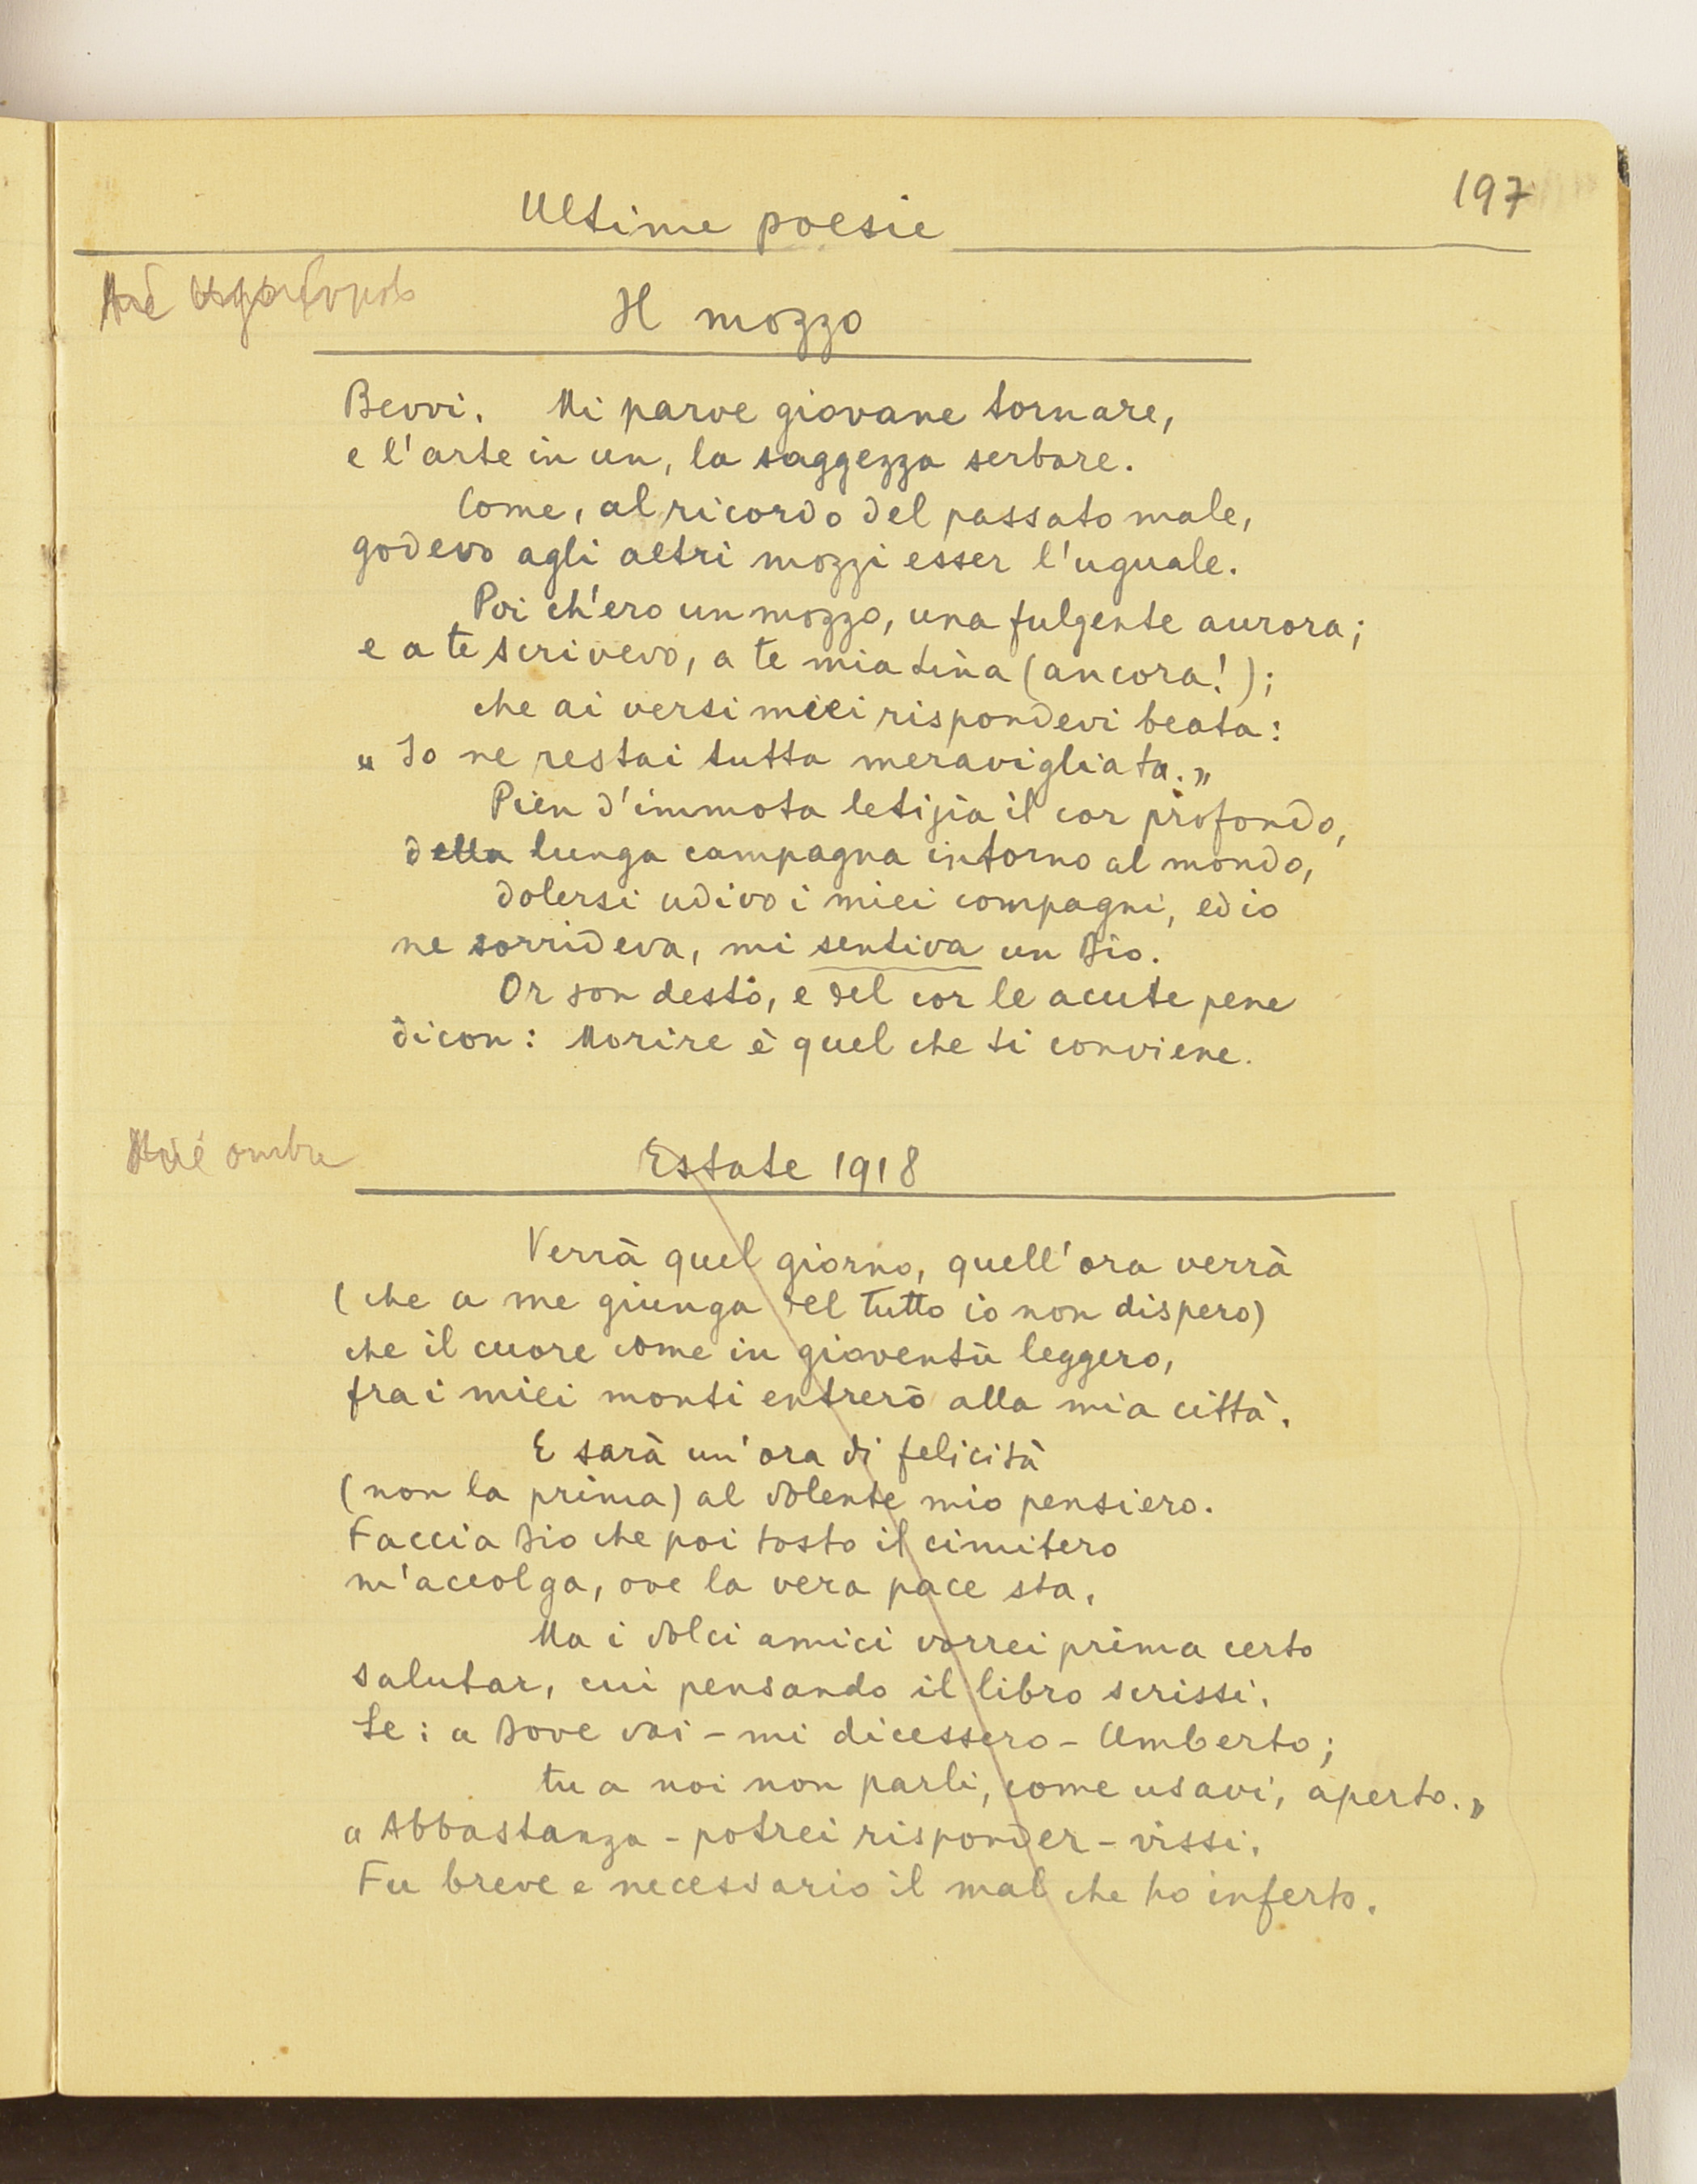 197
Ultime poesie
Il mozzo
Bevvi. Mi parve giovane tornare,
e l'arte in un, la saggezza serbare.
Come, al ricordo del passato male,
godevo agli altri mozzi esser l'uguale.
Poi ch'ero un mozzo, una fulgente aurora;
e a te scrivevo, a te mia Lina (ancora!);
che ai versi miei rispondevi beata:
"Io ne restai tutta meravigliata."
Pien d'immota letizia il cor profondo,
della lunga campagna intorno al mondo,
dolersi udivo i miei compagni, ed io
ne sorrideva, mi sentiva un Dio.
Or son desto, e del cor le acute pene
dicon: Morire è quel che ti conviene.
ombre
Estate 1918
Verrà quel giorno, quell'ora verrà
(che a me giunga del tutto io non dispero)
che il cuore come in gioventù leggero,
fra i miei monti entrerò alla mia città.
E sarà un'ora di felicità
(non la prima) al dolente mio pensiero.
Faccia Dio che poi tosto il cimitero
m'accolga, ove la vera pace sta.
Ma i dolci amici vorrei prima certo
salutar, cui pensando il libro scrissi.
Se: "Dove vai - mi dicessero - Umberto;
tu a noi non parli, come usavi, aperto."
"Abbastanza - potrei risponder - vissi.
Fu breve e necessario il mal che ho inferto.